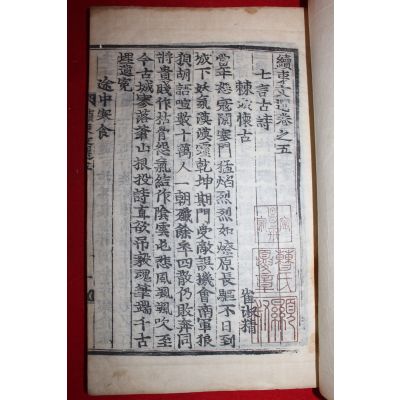 續東文選卷之五
七言古詩
棘城懷古
崔淑精
當年寇闌塞門猛焰烈烈如燎原長驅不日到
城下妖氛漠漠霾乾坤期門受敵誤機會南軍狼
狽胡語喧數十萬人一朝殲餘卒四散仍敗奔同
將貴賤作枯骨怨氣結作陰雲屯悲風颯颯吹至
今古城落山根投詩直欲吊毅魂筆端千古
埋遺寃
途中寒食